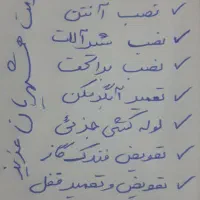 ✓ نصب آنتن
✓ نصب شیرآلات
✓ نصب پراکت
✓ تعمیر آبگرمکن
✓ لوله کشی جزئی
✓ تعویض فندک گاز
✓ تعویض و تعمیر قفل
همشهریان عزیز